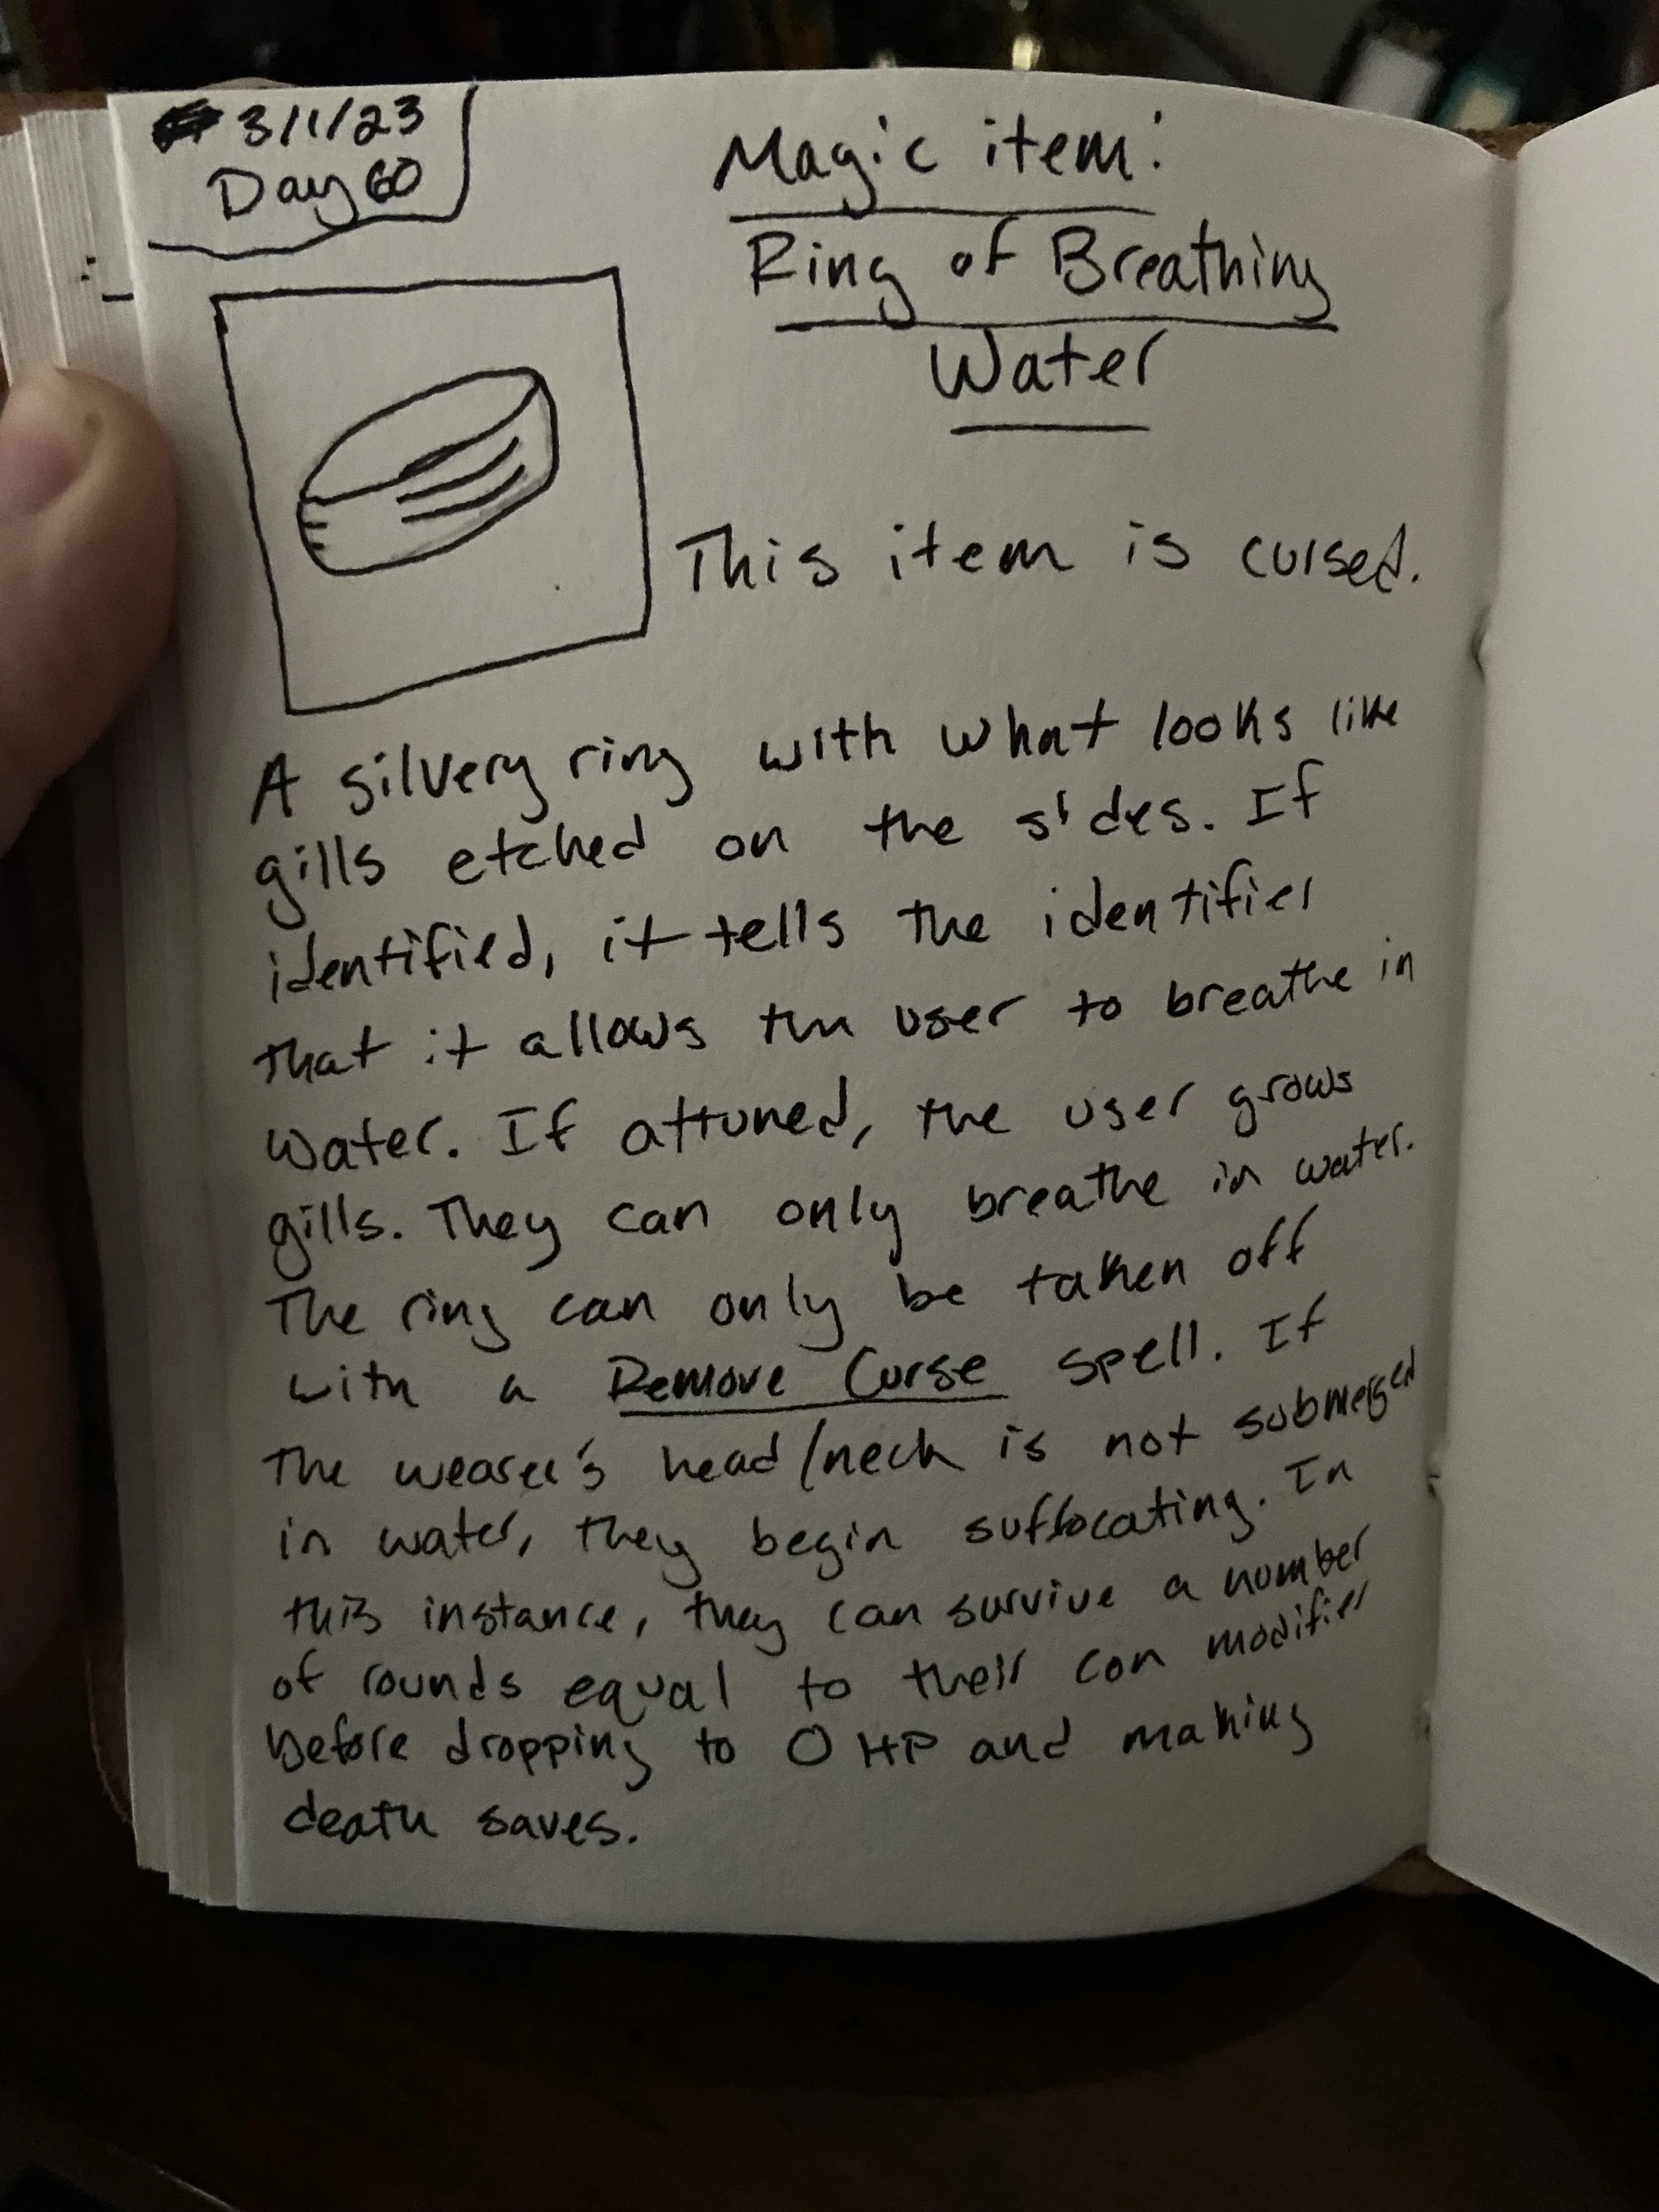 3/1/23
Day 60
Magic item:
Ring of Breathing
Water
This item is cursed.
A silvery ring with what looks like
gills etched on the sides. If
identified, it tells the identifier
that it allows the user to breathe in
water. If attuned, the user grows
gills. They can only breathe in water.
The ring can only be taken off
with a Remove Curse spell. If
the wearer's head/neck is not submerged
in water, they begin suffocating. In
this instance, they can survive a number
of rounds equal to their con modifier
before dropping to 0 HP and making
death saves.